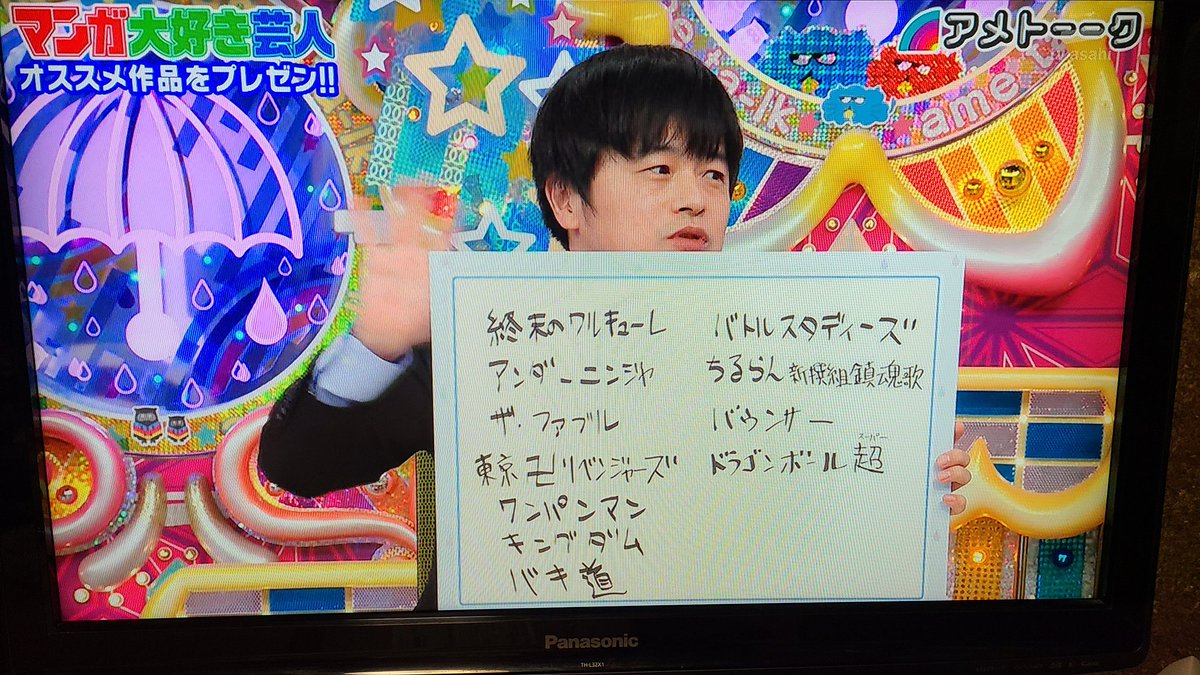 マンガ大好き芸人
オススメ作品をプレゼン!!
アメトーーク
ame
終末のワルキューレ
アンダーニンジャ
ザ・ファブル
東京卍リベンジャーズ
ワンパンマン
キングダム
バキ道
バトルスタディーズ
ちるらん 新撰組鎮魂歌
バウンサー
スーパー
ドラゴンボール超
Panasonic
TH-L32X1